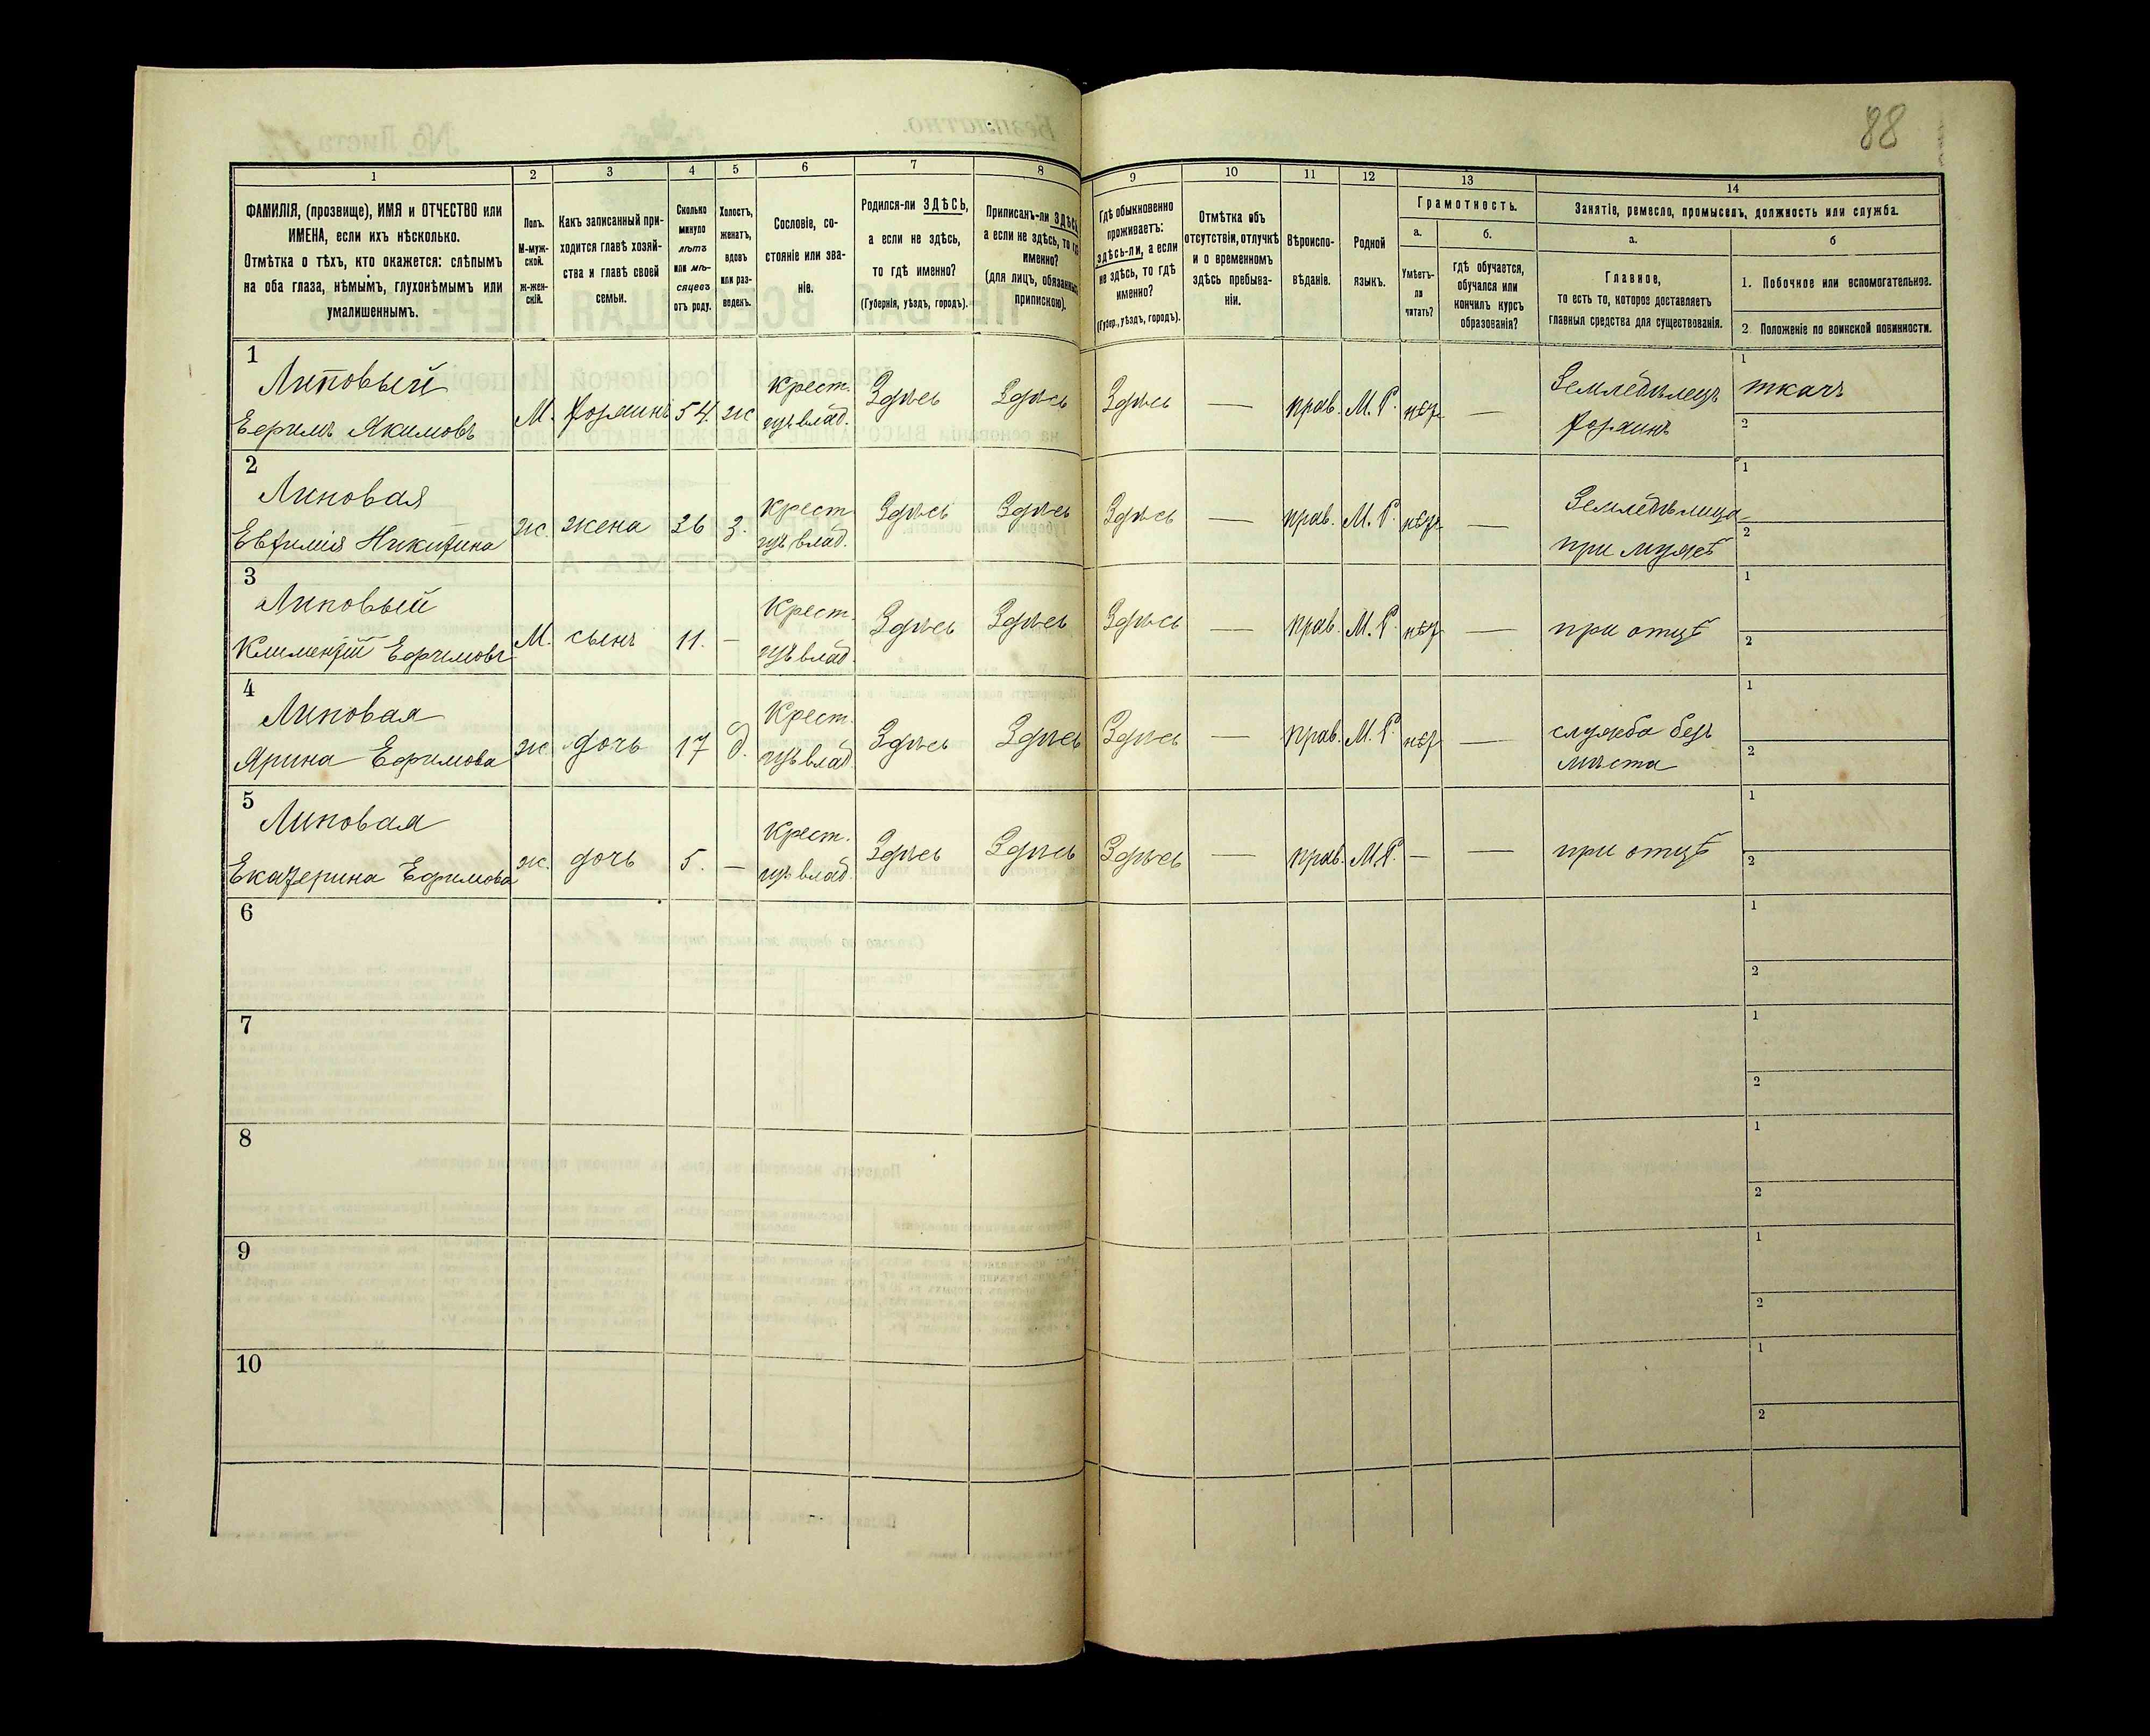 88
1
2
3
4
5
6
7
8
9
10
11
12
13
14
ФАМИЛІЯ, (прозвище), ИМЯ и ОТЧЕСТВО или
ИМЕНА, если ихъ нѣсколько.
Отмѣтка о тѣхъ, кто окажется: слѣпымъ
на оба глаза, нѣмымъ, глухонѣмымъ или
умалишеннымъ.
Полъ.
М-муж-
ской.
Ж-жен-
скій.
Какъ записанный при-
ходится главѣ хозяй-
ства и главѣ своей
семьи.
Сколько
минуло
лѣтъ
или мѣ-
сяцевъ
отъ роду.
Холостъ,
женатъ,
вдовъ
или раз-
веденъ.
Сословіе, со-
стояніе или зва-
ніе.
Родился-ли ЗДѢСЬ,
а если не здѣсь,
то гдѣ именно?
(Губернія, уѣздъ, городъ).
Приписанъ-ли ЗДѢСЬ,
а если не здѣсь, то гдѣ
именно?
(для лицъ, обязанныхъ
припискою).
Гдѣ обыкновенно
проживаетъ:
здѣсь-ли, а если
не здѣсь, то гдѣ
именно?
(Губер., уѣздъ, городъ).
Отмѣтка объ
отсутствіи, отлучкѣ
и о временномъ
здѣсь пребыва-
ніи.
Вѣроиспо-
вѣданіе.
Родной
языкъ.
Грамотность.
а.
Умѣетъ-
ли
читать?
б.
гдѣ обучается,
обучался или
кончилъ курсъ
образованія?
Занятіе, ремесло, промыселъ, должность или служба.
а.
Главное,
то есть то, которое доставляетъ
главныя средства для существованія.
б
1. Побочное или вспомогательное.
2. Положеніе по воинской повинности.
1
Липовый
Ефимъ Якимовъ
М. хозяинъ 54. ж Крест. изъ влад. Здѣсь Здѣсь Здѣсь — прав. М. Р. нѣт — Земледѣлецъ хозяинъ
1 ткачъ
2
2
Липовая
Евфимія Никитина
ж. жена 36 з. Крест изъ влад. Здѣсь Здѣсь Здѣсь — прав. М. Р. нѣт — Земледѣлица при мужѣ
1
2
3
Липовый
Климентій Ефимовъ
М. сынъ 11. — Крест. изъ влад. Здѣсь Здѣсь Здѣсь — прав. М. Р. нѣт — при отцѣ
1
2
4
Липовая
Ярина Ефимова
ж дочь 17 д. Крест. изъ влад. Здѣсь Здѣсь Здѣсь — прав. М. Р. нѣт — служба безъ мѣста
1
2
5
Липовая
Екатерина Ефимова
ж. дочь 5. — Крест. изъ влад. Здѣсь Здѣсь Здѣсь — прав. М. Р. — — при отцѣ
1
2
6
1
2
7
1
2
8
1
2
9
1
2
10
1
2